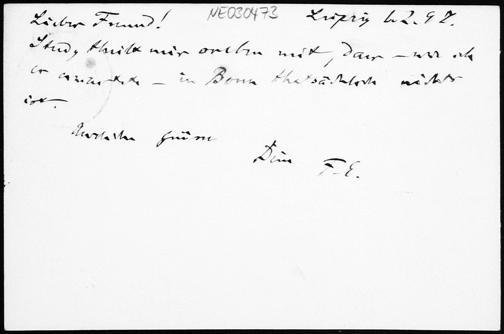 Lieber Freund! NE030473 Leipzig 6.2.97.
Study theilt mir soeben mit, dass – wie ich
es erwartete – in Bonn thatsächlich nichts
ist.
Herzliche Grüsse
Dein F. E.